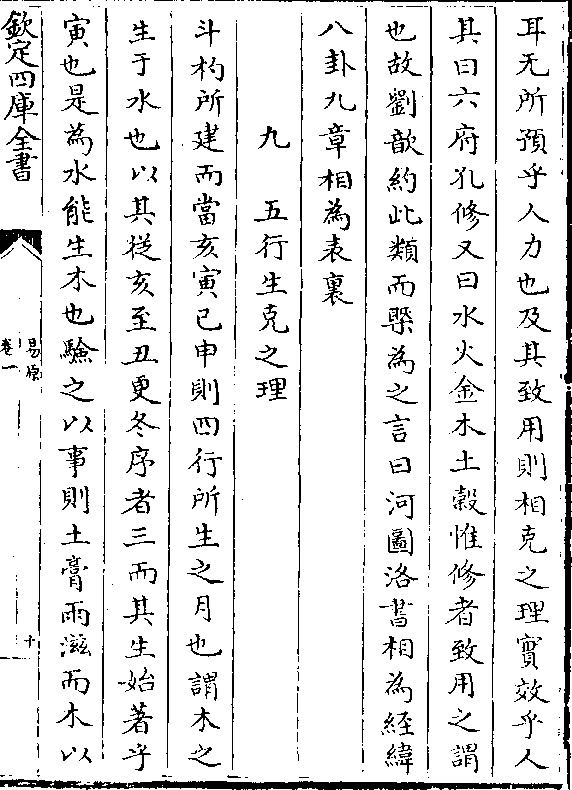 耳无所預乎人力也及其致用則相克之理實效乎人
其曰六府孔修又曰水火金木土穀惟修者致用之謂
也故劉歆約此類而槩為之言曰河圖洛書相為經緯
八卦九章相為表裏
九　五行生克之理
斗杓所建而當亥寅已申則四行所生之月也謂木之
生于水也以其從亥至丑更冬序者三而其生始著乎
寅也是為水能生木也驗之以事則土膏雨滋而木以
欽定四庫全書
易原
卷一
十